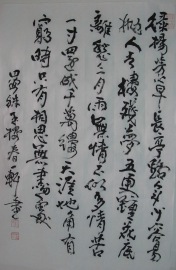 綠楊芳草長亭路年少容易
拋人去樓頭殘夢五更鐘花底
離愁三月雨無情不似多情苦
一寸還成千萬縷天涯地角有
窮時只有相思無盡處
晏殊玉樓春